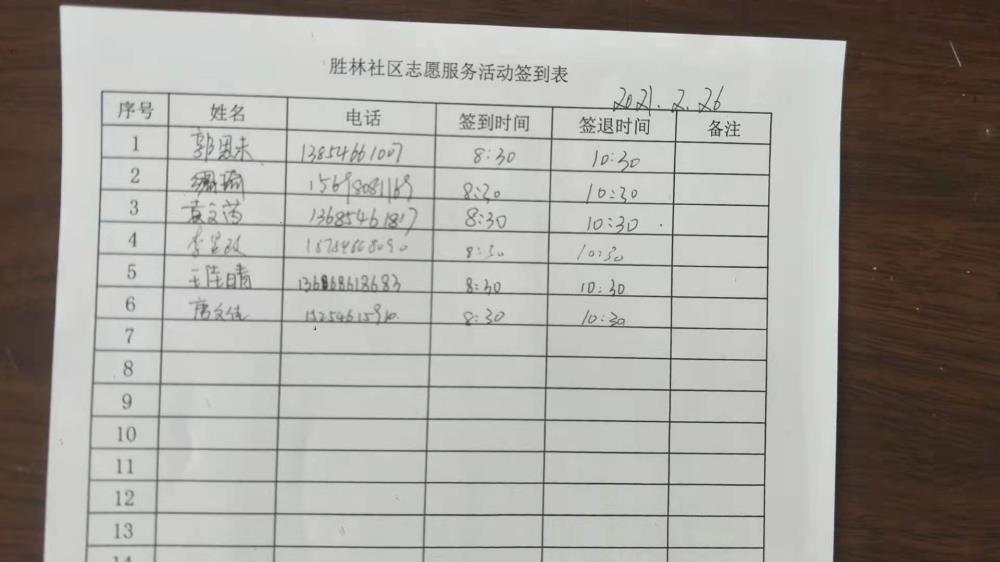 胜林社区志愿服务活动签到表
2021.2.26
序号 姓名 电话 签到时间 签退时间 备注
1 郭思未 13854661007 8:30 10:30
2 15698081169 8:30 10:30
3 袁文芮 13685461817 8:30 10:30
4 8:30 10:30
5 8:30 10:30
6 8:30 10:30
7
8
9
10
11
12
13
14